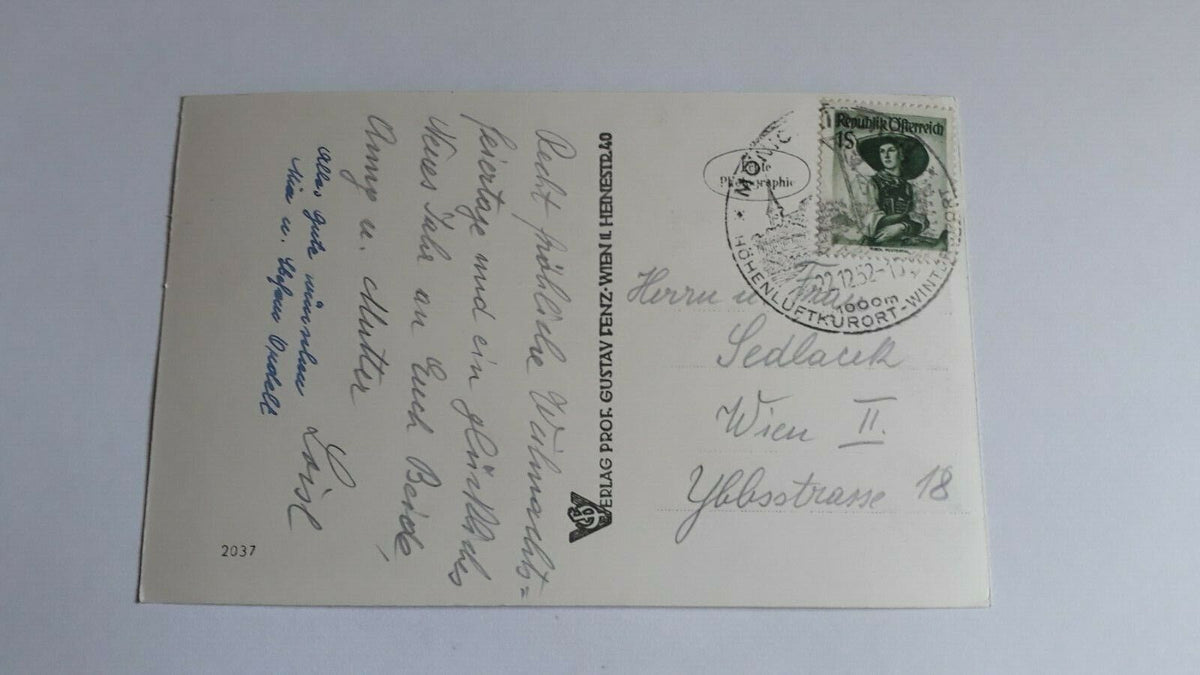 Recht fröhliche Weihnachts=
feiertage und ein glückliches
Neues Jahr an Euch Beide
u. Mutter
Loisl
Alles gute wünschen
u. Stefan
2037
VERLAG PROF. GUSTAV FENZ·WIEN II. HEINESTR.40
Echte
Photographie
Republik Österreich
1S
MÖNIC
22.12.52-15
1000m
HÖHENLUFTKURORT-WINTERSPORT
Herrn u. Frau
Sedlacek
Wien II.
Ybbsstrasse 18